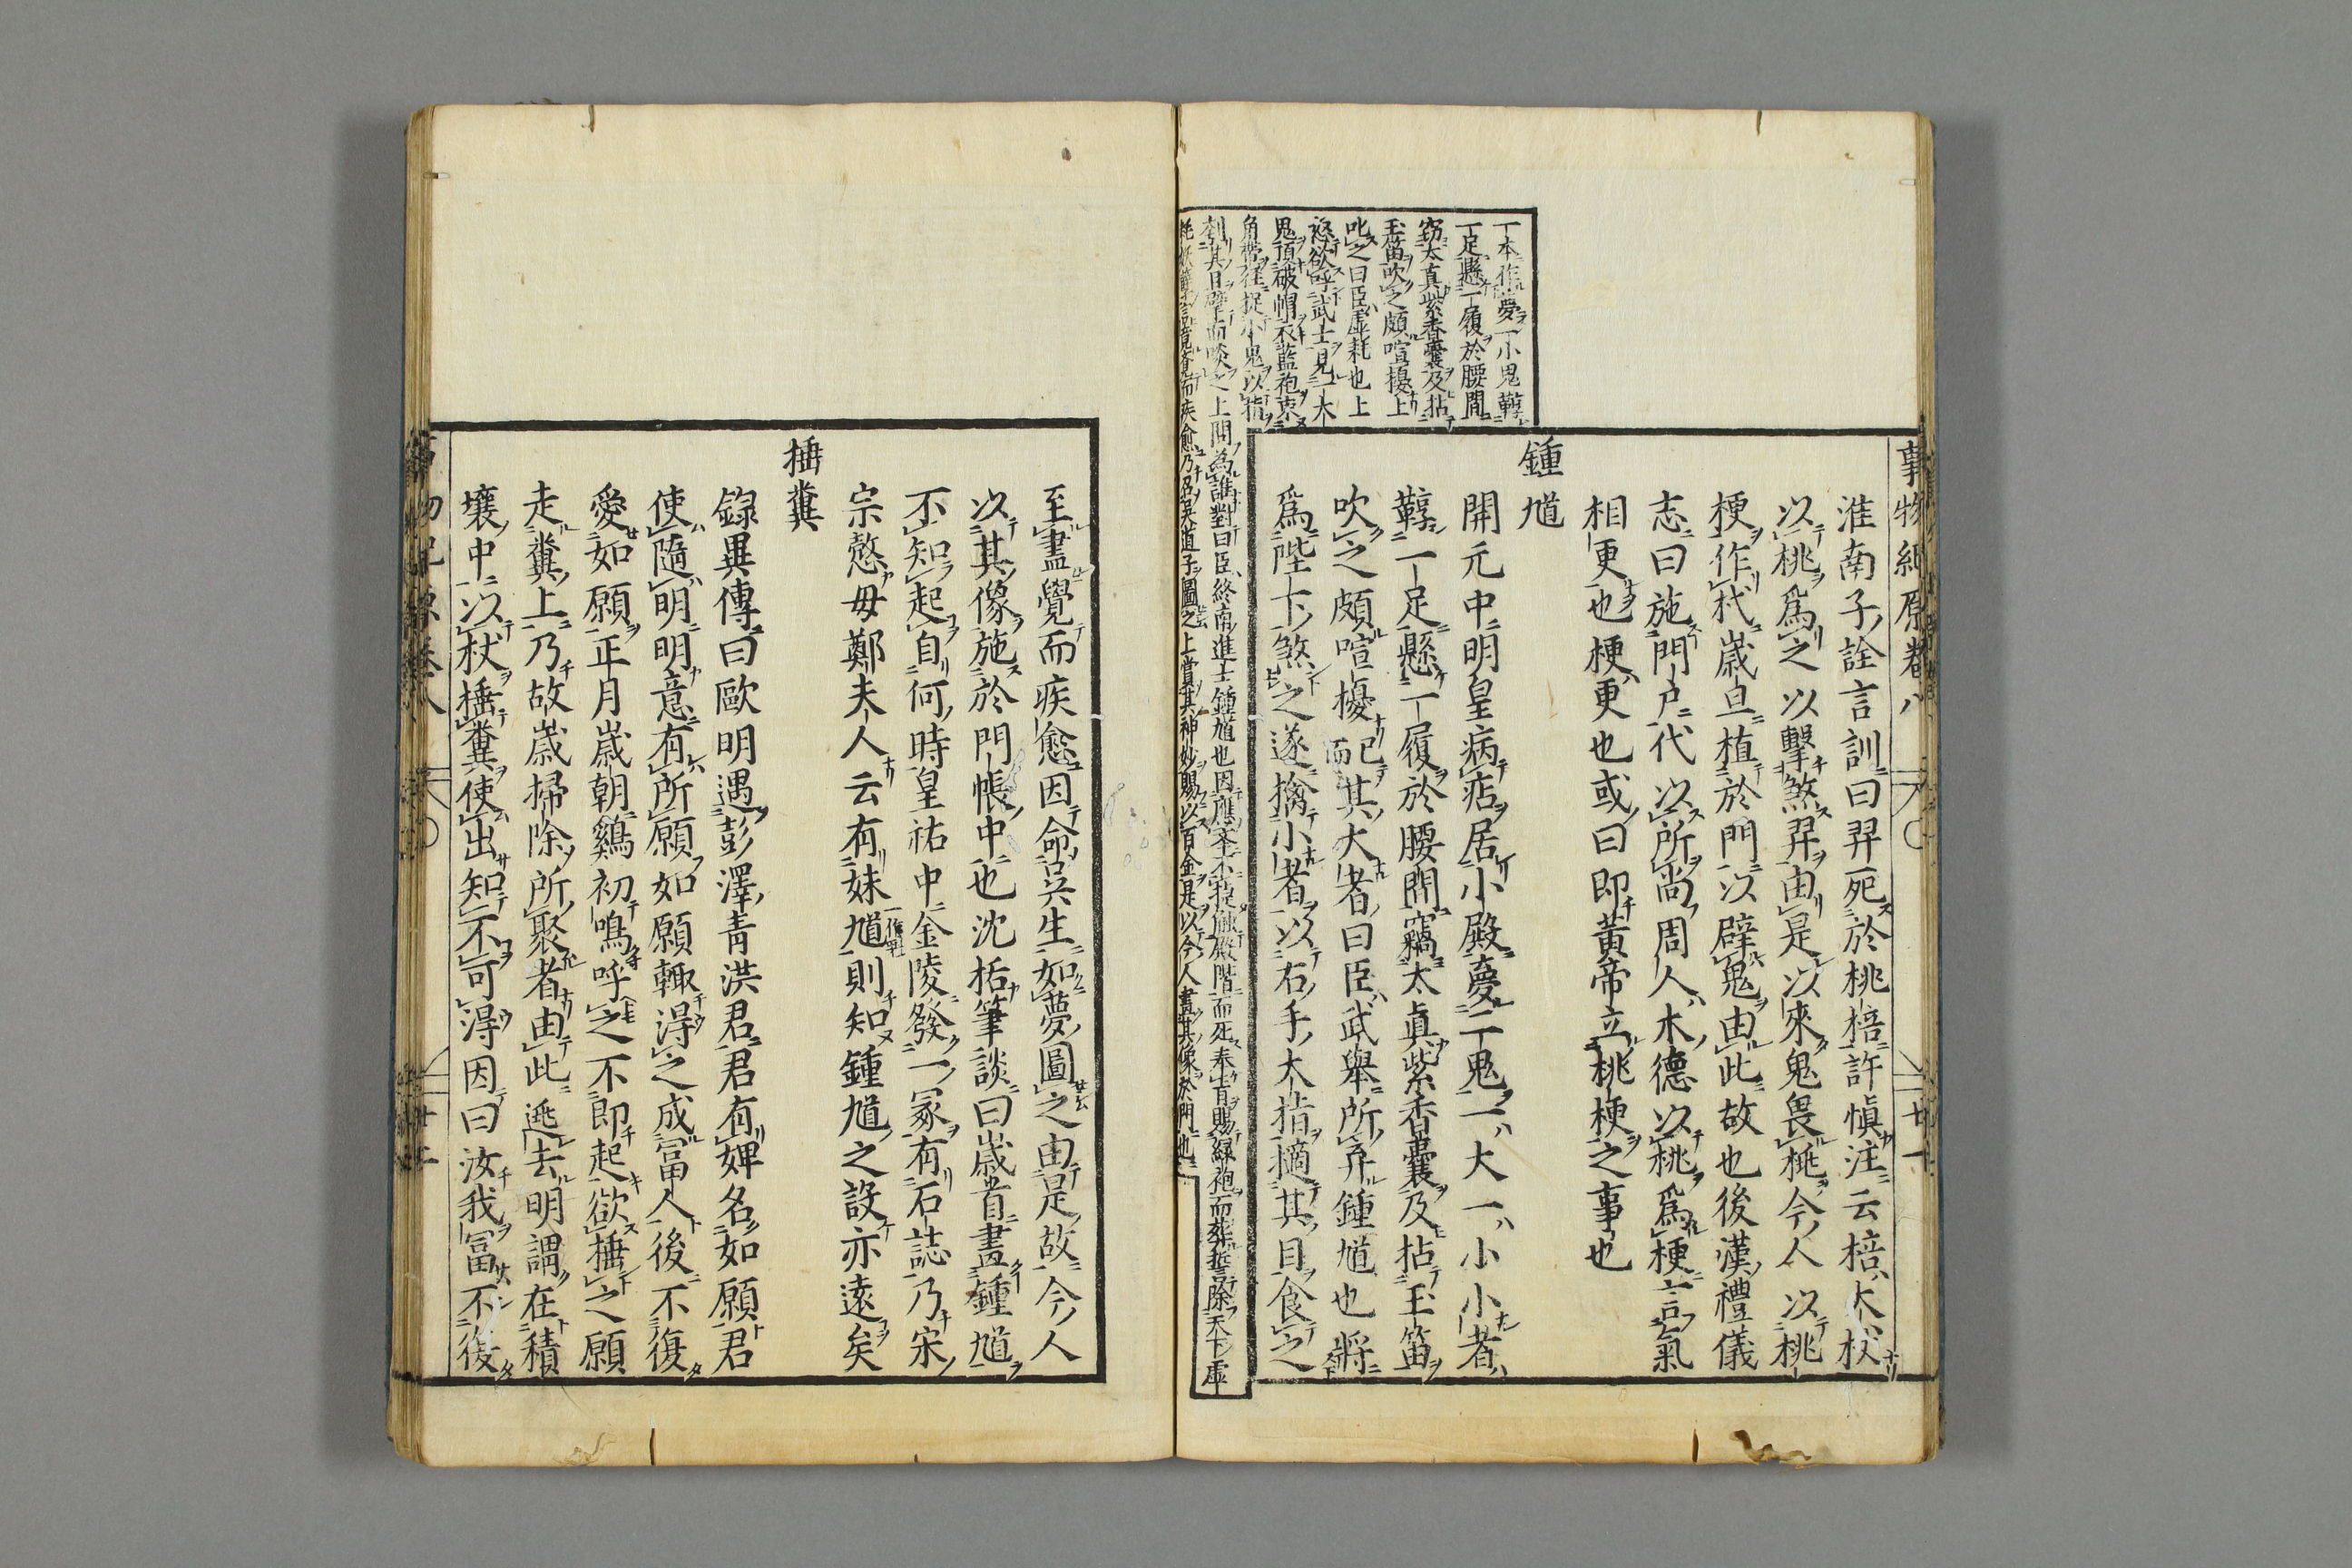 事物紀原卷八
廿一
淮南子詮言訓曰羿死於桃棓許愼注云棓大杖
以桃爲之以擊煞羿由是以來鬼畏桃今人以桃
梗作杙歳旦植於門以辟鬼由此故也後漢禮儀
志曰施門戸代以所尚周人木德以桃爲梗言氣
相更也梗更也或曰即黄帝立桃梗之事也
鍾馗
開元中明皇病痁居小殿夢二鬼一大一小小者
鞟一足懸一履於腰間竊太眞紫香囊及拈玉笛
吹之頗喧擾而其大者曰臣武舉所弃鍾馗也將
爲陛下煞之遂擒小者以右手大指擿其目食之
一本作夢一小鬼鞟
一足懸一履於腰間
窃太真紫香囊及拈
玉笛吹之頗喧擾上
叱之曰臣虚耗也上
怒欲呼武士見一大
鬼頂破帽衣藍袍束
角帶徑捉小鬼以指
刳其目擘而啖之上問爲誰對曰臣終南進士鍾馗也因應不捷觸殿階而死奉旨賜緑袍而葬誓除天下虚
耗妖孽言竟覺而疾愈乃召吴道子圖之上賞其神妙賜以百金是以今人畫其像於門也
至盡覺而疾愈因命吴生如夢圖之由是故今人
以其像施於門帳中也沈括筆談曰歳首畫鍾馗
不知起自何時皇祐中金陵發一冢有石誌乃宋
宗愨毋鄭夫人云有妹馗則知鍾馗之設亦遠矣
捶糞
錄異傳曰歐明遇彭澤青洪君君有婢名如願君
使隨明明意有所願如願輙淂之成冨人後不復
愛如願正月歳朝鷄初鳴呼之不即起欲捶之願
走糞上乃故歳掃除所聚者由此逃去明謂在積
壤中以杖捶糞使出知不可淂因曰汝我冨不復
廿二